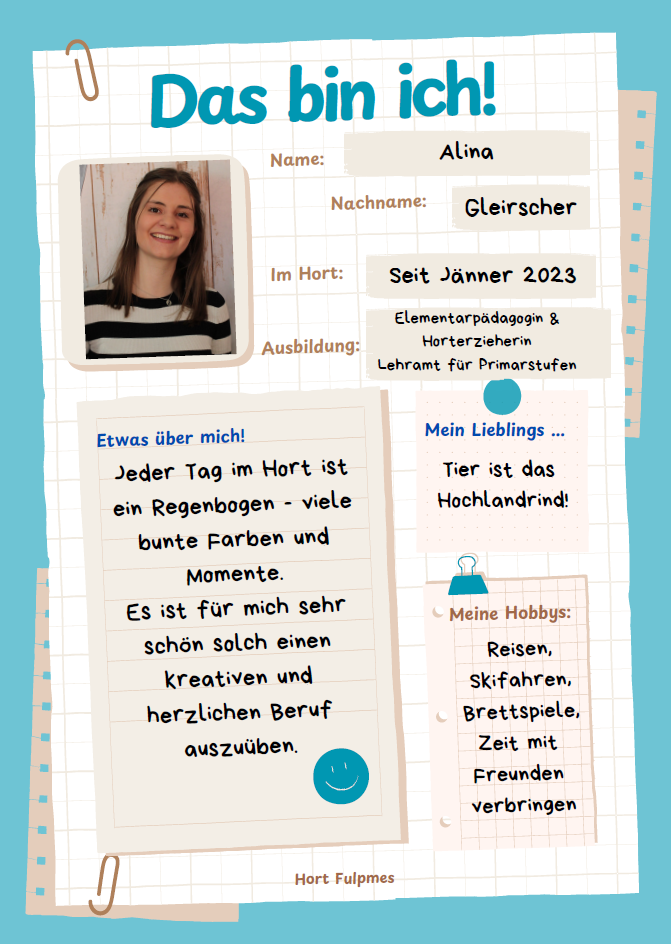 Das bin ich!
Name: Alina
Nachname: Gleirscher
Im Hort: Seit Jänner 2023
Ausbildung: Elementarpädagogin &
Horterzieherin
Lehramt für Primarstufen
Etwas über mich!
Jeder Tag im Hort ist
ein Regenbogen - viele
bunte Farben und
Momente.
Es ist für mich sehr
schön solch einen
kreativen und
herzlichen Beruf
auszuüben.
Mein Lieblings ...
Tier ist das
Hochlandrind!
Meine Hobbys:
Reisen,
Skifahren,
Brettspiele,
Zeit mit
Freunden
verbringen
Hort Fulpmes